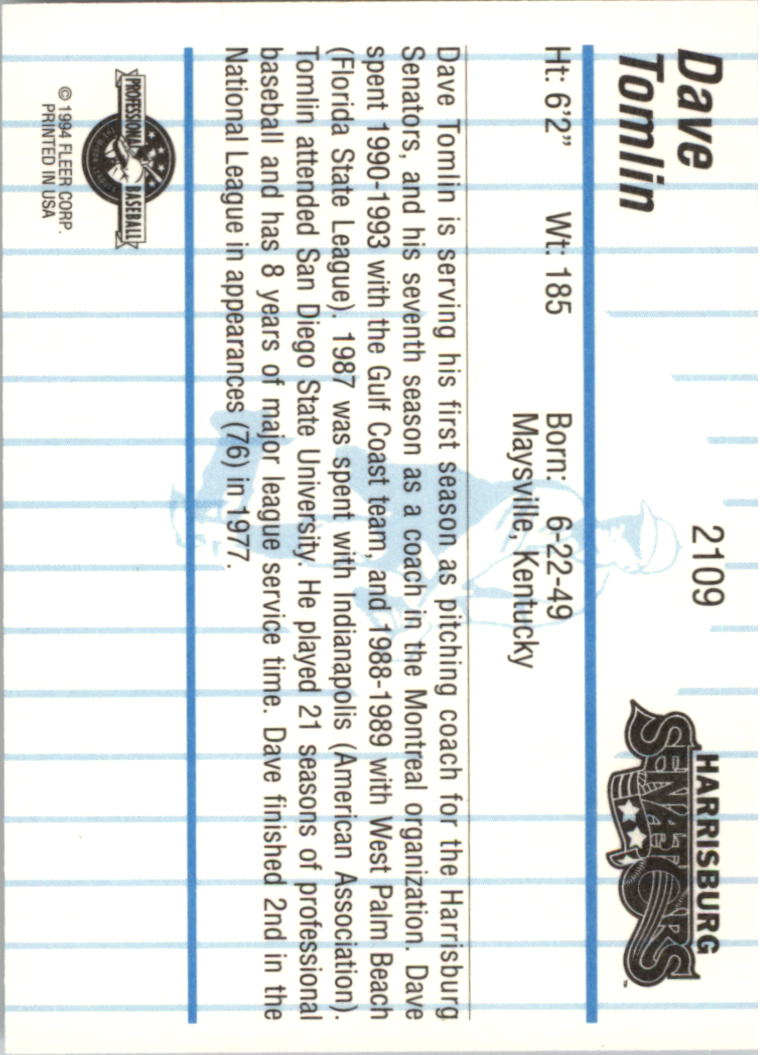 Dave
Tomlin
2109
HARRISBURG
SENATORS
™
Ht: 6'2" Wt: 185 Born: 6-22-49
Maysville, Kentucky
Dave Tomlin is serving his first season as pitching coach for the Harrisburg
Senators, and his seventh season as a coach in the Montreal organization. Dave
spent 1990-1993 with the Gulf Coast team, and 1988-1989 with West Palm Beach
(Florida State League). 1987 was spent with Indianapolis (American Association).
Tomlin attended San Diego State University. He played 21 seasons of professional
baseball and has 8 years of major league service time. Dave finished 2nd in the
National League in appearances (76) in 1977.
PROFESSIONAL BASEBALL
© 1994 FLEER CORP.
PRINTED IN USA